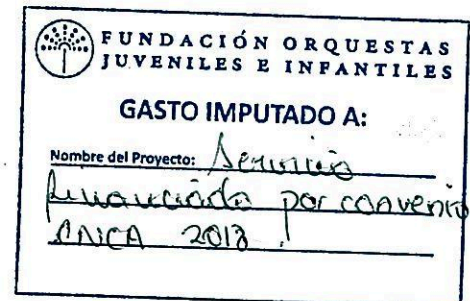 FUNDACIÓN ORQUESTAS
JUVENILES E INFANTILES
GASTO IMPUTADO A:
Nombre del Proyecto: Servicio
financiado por convenio
CNCA 2018.